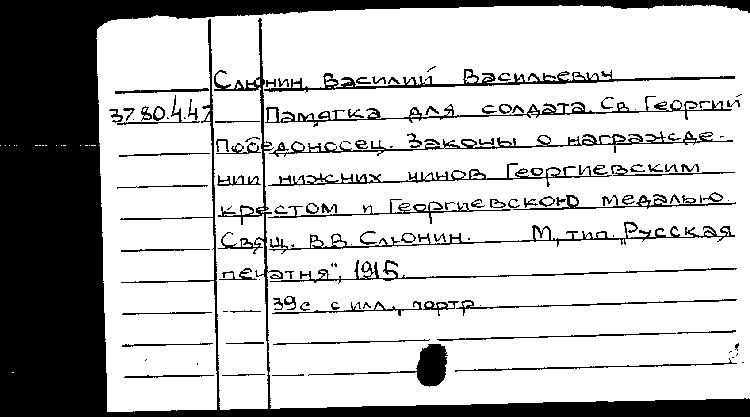 Слюнин, Василий Васильевич
37.80.4.47 Памятка для солдата. Св. Георгий
Победоносец. Законы о награжде-
нии нижних чинов Георгиевским
крестом и Георгиевскою медалью.
Свящ. В.В. Слюнин. М., тип. „Русская
печатня", 1915.
39 с. с илл., портр.